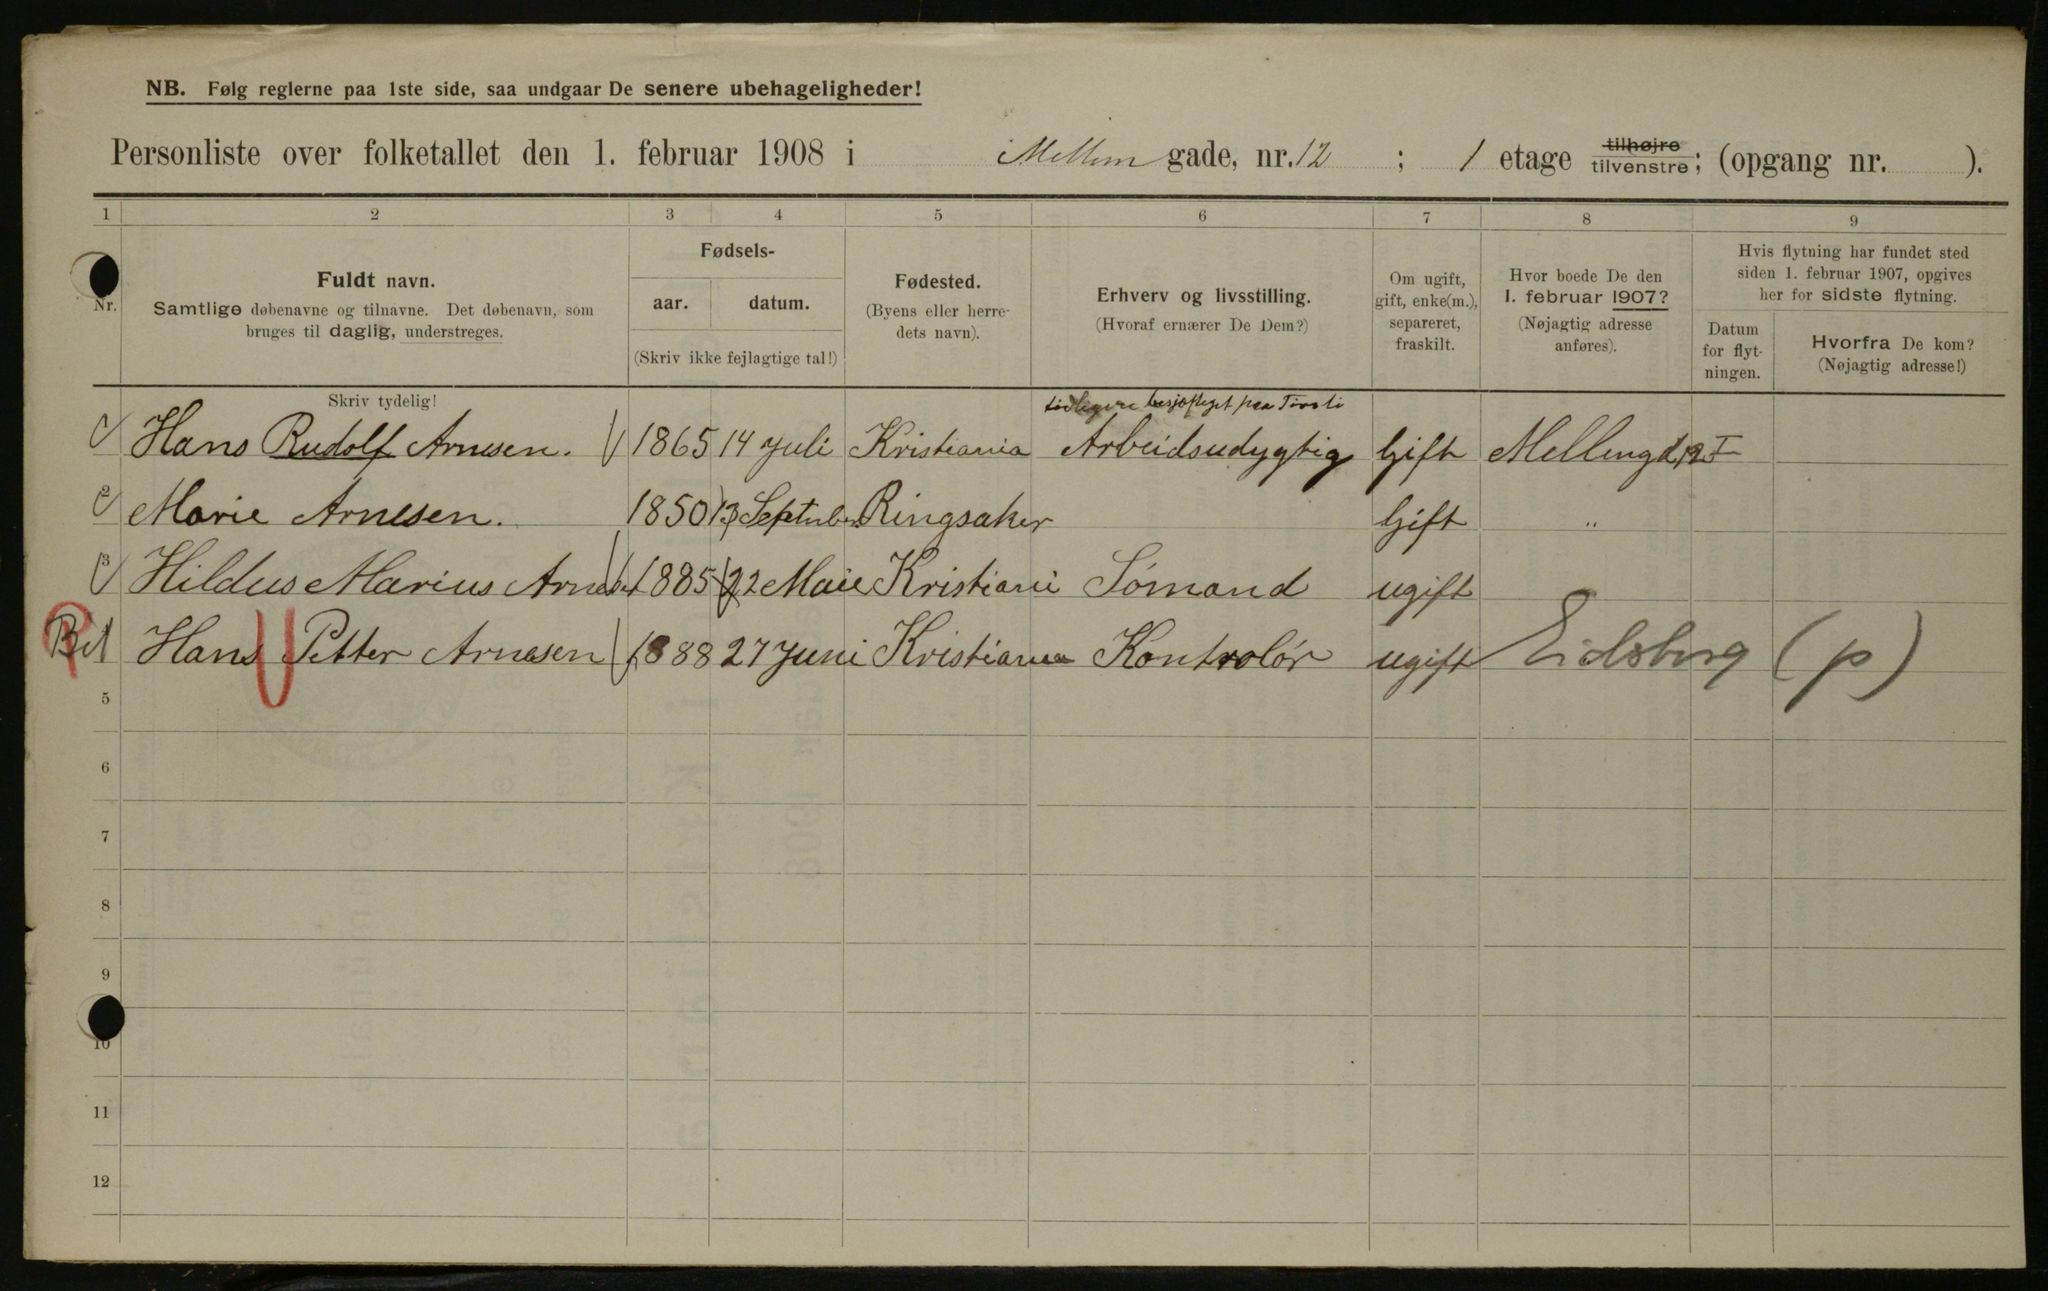 NB. Følg reglerne paa 1ste side, saa undgaar De senere ubehageligheder!
Personliste over folketallet den 1. februar 1908 i Mellem gade, nr. 12 ; 1 etage tilhøjre tilvenstre; (opgang nr. ).
1 2 3 4 5 6 7 8 9
Nr.
Fuldt navn.
Samtlige døbenavne og tilnavne. Det døbenavn, som
bruges til daglig, understreges.
Skriv tydelig!
Fødsels-
aar. datum.
(Skriv ikke fejlagtige tal!)
Fødested.
(Byens eller herre-
dets navn).
Erhverv og livsstilling.
(Hvoraf ernærer De Dem?)
Om ugift,
gift, enke(m.),
separeret,
fraskilt.
Hvor boede De den
1. februar 1907?
(Nøjagtig adresse
anføres).
Hvis flytning har fundet sted
siden 1. februar 1907, opgives
her for sidste flytning.
Datum
for flyt-
ningen.
Hvorfra De kom?
(Nøjagtig adresse!)
tidligere besjæftiget paa Tivoli
Hans Rudolf Arnesen. 1865 14 Juli Kristiania Arbeidsudygtig Gift Mellemgd 12 I
2 Marie Arnesen. 1850 13 September Ringsaker Gift "
3 Hildus Marius Arnesen 1885 22 Maie Kristiani Sómand ugift
Hans Petter Arnesen 1888 27 Juni Kristiania Kontrolör ugift Eidsberg (p)
5
6
7
8
9
10
11
12